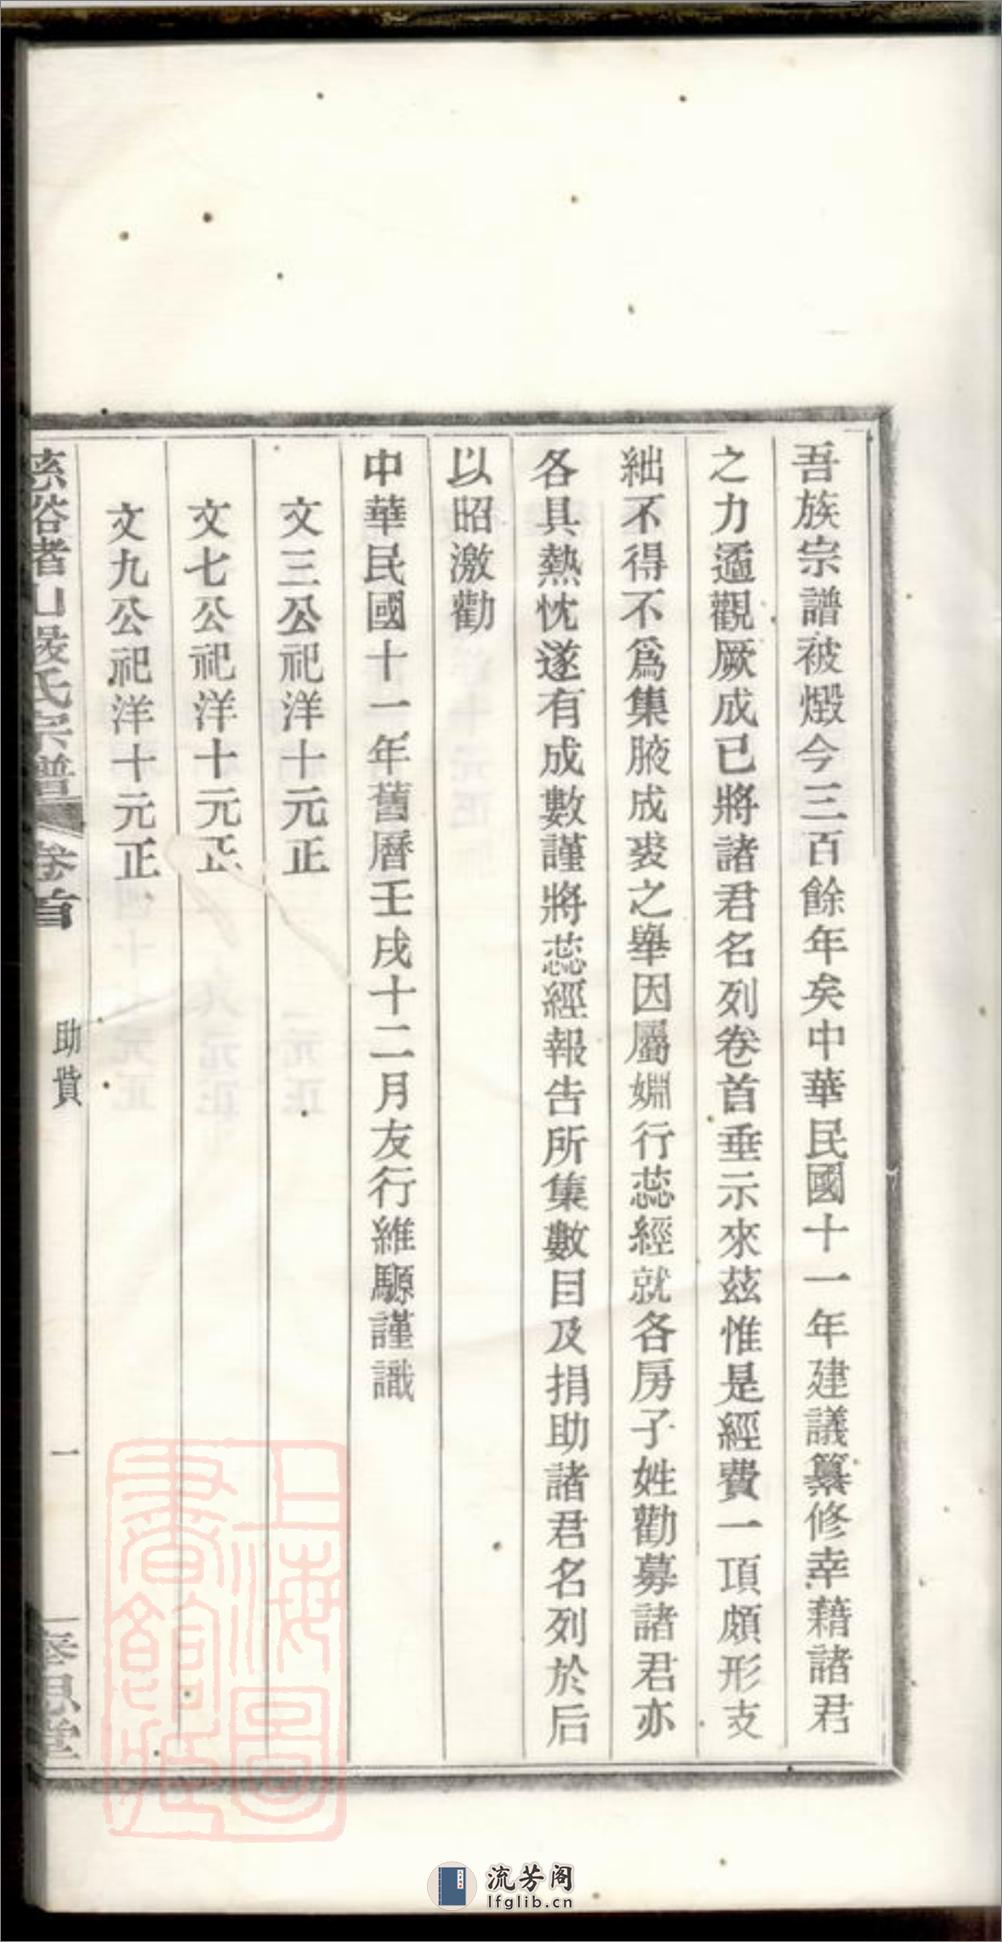 吾族宗譜被燬今三百餘年矣中華民國十一年建議纂修幸藉諸君
之力遹觀厥成已將諸君名列卷首垂示來茲惟是經費一項頗形支
絀不得不爲集腋成裘之舉因屬婣行蕊經就各房子姓勸募諸君亦
各具熱忱遂有成數謹將蕊經報告所集數目及捐助諸君名列於后
以昭激勸
中華民國十一年舊曆壬戌十二月友行維騵謹識
文三公祀洋十元正
文七公祀洋十元正
文九公祀洋十元正
山嚴氏宗譜 卷首 助貲 一 奉思堂
上海圖
書館藏
流芳阁
lfglib.cn